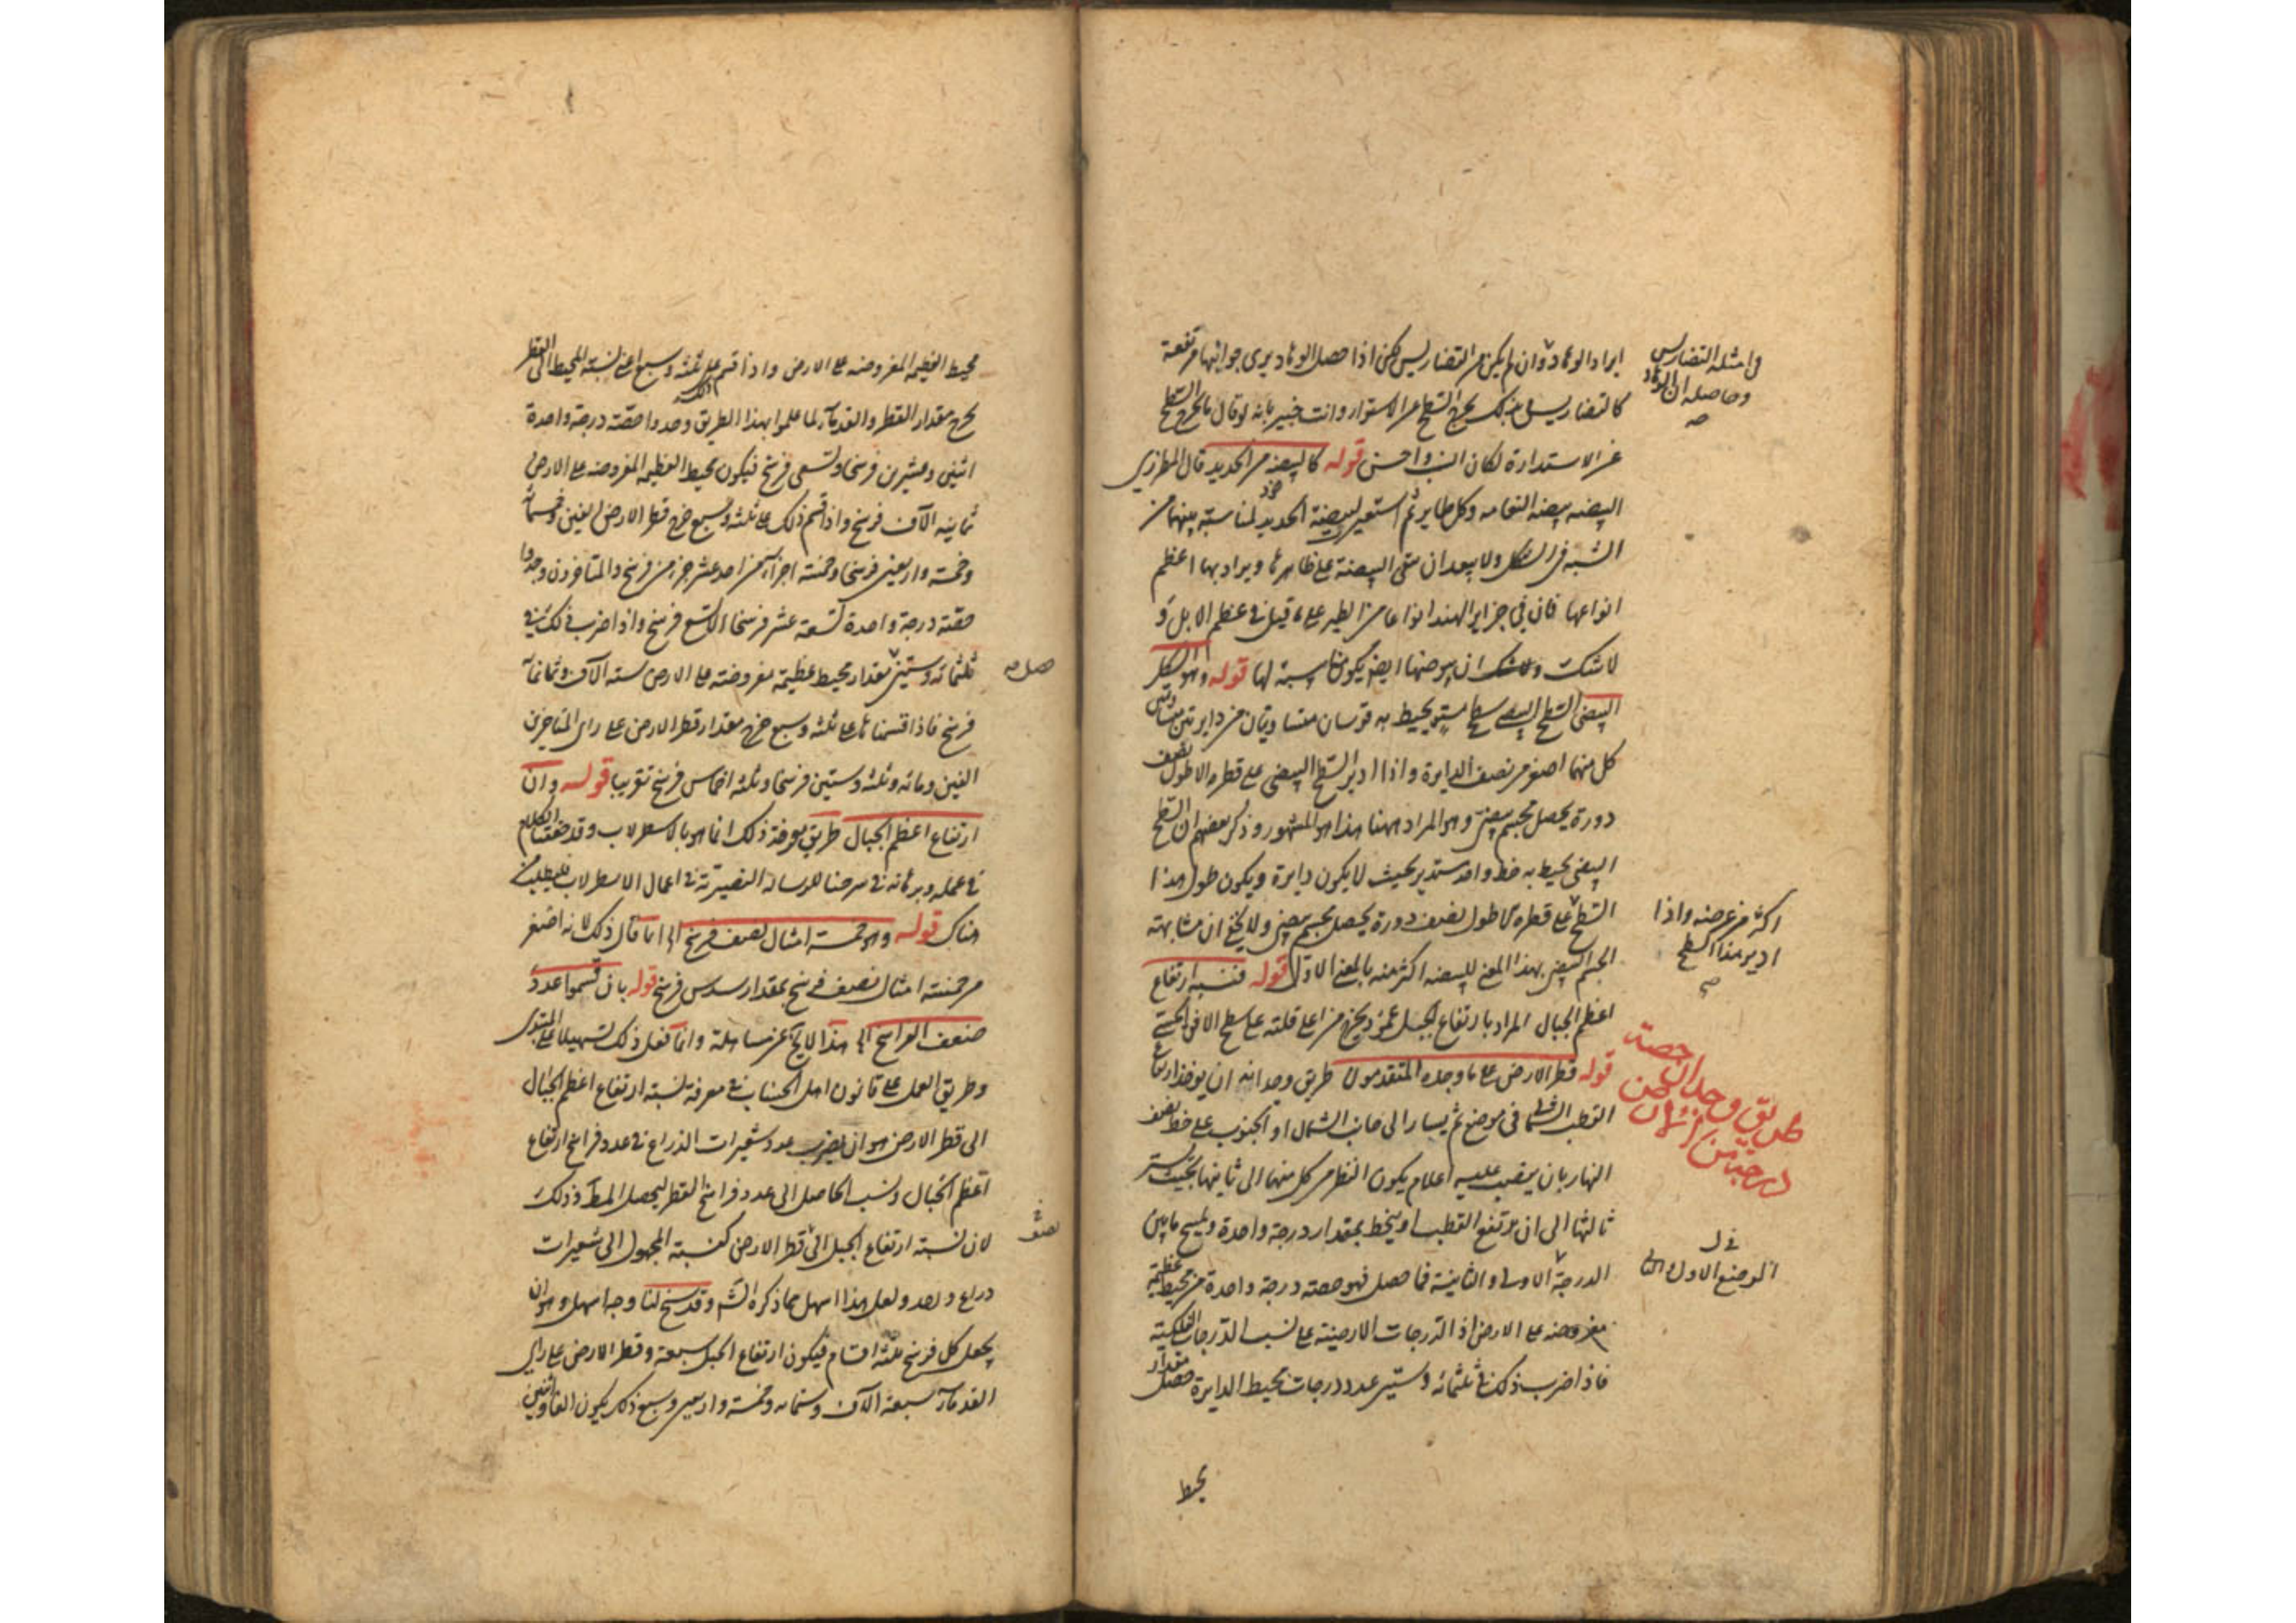 ايراد الوهاد وان لم يكن من التضاريس لكن اذا حصل الوهاد يرى جوانبها مرتفعة
كالتضاريس فبذلك يخرج السطح عن الاستواء وانت خبير بانه لو قال يخرج السطح
عن الاستدارة لكان انسب واحسن قوله كالبيضة من الحديد قال المطرزي
البيضة بيضة النعامة وكل طاير ثم استعير لبيضة الحديد لمناسبته بينهما من
الشبه في الشكل ولا يبعد ان تبقى البيضة على ظاهرها ويراد بها اعظم
انواعها فان في جزاير الهند انواعا من الطير على ما قيل في عظم الابل و
لا شك ان بيوضها ايضا يكون مناسبة لها قوله وهو الشكل
البيضي السطح البيضي سطح مستو يحيط به قوسان متساويتان من دايرتين متساويتين
كل منهما اصغر من نصف الدايرة واذا ادير السطح البيضي على قطره الاطول نصف
دورة يحصل مجسم بيضي وهو المراد ههنا هذا هو المشهور وذكر بعضهم ان السطح
البيضي يحيط به خط واحد مستدير بحيث لا يكون دايرة ويكون طول هذا
السطح على قطره الاطول نصف دورة يحصل مجسم بيضي ولا يخفى ان مشابهة
الجسم البيضي بهذا المعنى للبيضة اكثر منه بالمعنى الاول قوله فنسبة ارتفاع
اعظم الجبال المراد بارتفاع الجبل عمود يخرج من اعلى قلته على سطح الافق الحسي
قوله قطر الارض على ما وجده المتقدمون طريق وجدانه ان يوخذ ارتفاع
القطب الشمالي في موضع ثم يسار الى جانب الشمال او الجنوب على خط نصف
النهار بان ينصب عليه اعلام يكون النظر من كل منهما الى ثانيها بحيث يستر
ثالثها الى ان يرتفع القطب او ينحط بمقدار درجة واحدة ويمسح ما بين
الدرجة الاولى والثانية فما حصل فهو حصة درجة واحدة من محيط عظيمة
مفروضة على الارض اذ الدرجات الارضية على نسب الدرجات الفلكية
فاذا ضرب ذلك في ثلثمائة وستين عدد درجات محيط الدايرة حصل مقدار
محيط
في امثلة التضاريس
وحاصله ان الوهاد
اكثر من عرضه واذا
ادير هذا السطح
طريق وجدان حصة
درجة من
الموضع الاول
محيط العظيمة المفروضة على الارض واذا قسم على ثلثة وسبع اعني نسبة المحيط الى القطر
يخرج مقدار القطر والقدماء لما عملوا بهذا الطريق وجدوا حصة درجة واحدة
اثنين وعشرين فرسخا وتسعي فرسخ فيكون محيط العظيمة المفروضة على الارض
ثمانية الآف فرسخ واذا قسم ذلك على ثلثة وسبع خرج قطر الارض الفين وخمسمائة
وخمسة واربعين فرسخا وخمسة اجزاء من احد عشر جزء من فرسخ والمتاخرون وجدوا
حصة درجة واحدة تسعة عشر فرسخا الا تسع فرسخ واذا ضرب ذلك في
ثلثمائة وستين مقدار محيط عظيمة مفروضة على الارض ستة الآف وثمانمائة
فرسخ فاذا قسمناها على ثلثة وسبع خرج مقدار قطر الارض على راى المتاخرين
الفين ومائة وثلثة وستين فرسخا وثلثة اخماس فرسخ تقريبا قوله وان
ارتفاع اعظم الجبال طريق معرفة ذلك انما هو بالاسطرلاب وقد حققنا الكلام
في عمله وبرهانه في شرحنا للرسالة النصيرية في اعمال الاسطرلاب فليطلب من
هناك قوله وهو خمسة امثال نصف فرسخ الى انما قال ذلك لانه اصغر
من خمسة امثال نصف فرسخ بمقدار سدس فرسخ قوله بان قسموا عدد
ضعف الفراسخ الى هذا لا يخ عن مساهلة وانما فعل ذلك تسهيلا على المبتدى
وطريق العمل على قانون اهل الحساب في معرفة نسبة ارتفاع اعظم الجبال
الى قطر الارض هو ان يضرب عدد شعيرات الذراع في عدد فراسخ ارتفاع
اعظم الجبال ونسب الحاصل الى عدد فراسخ القطر ليحصل المط وذلك
لان نسبة ارتفاع الجبل الى قطر الارض كنسبة المجهول الى شعيرات
ذراع واحد ولعل هذا اسهل مما ذكره الش وقد سنح لنا وجه اسهل وهو ان
يجعل كل فرسخ ثلثة اقسام فيكون ارتفاع الجبل سبعة وقطر الارض على راى
القدماء سبعة الآف وستمائة وخمسة واربعين وسبع ذلك يكون الفا واثنين